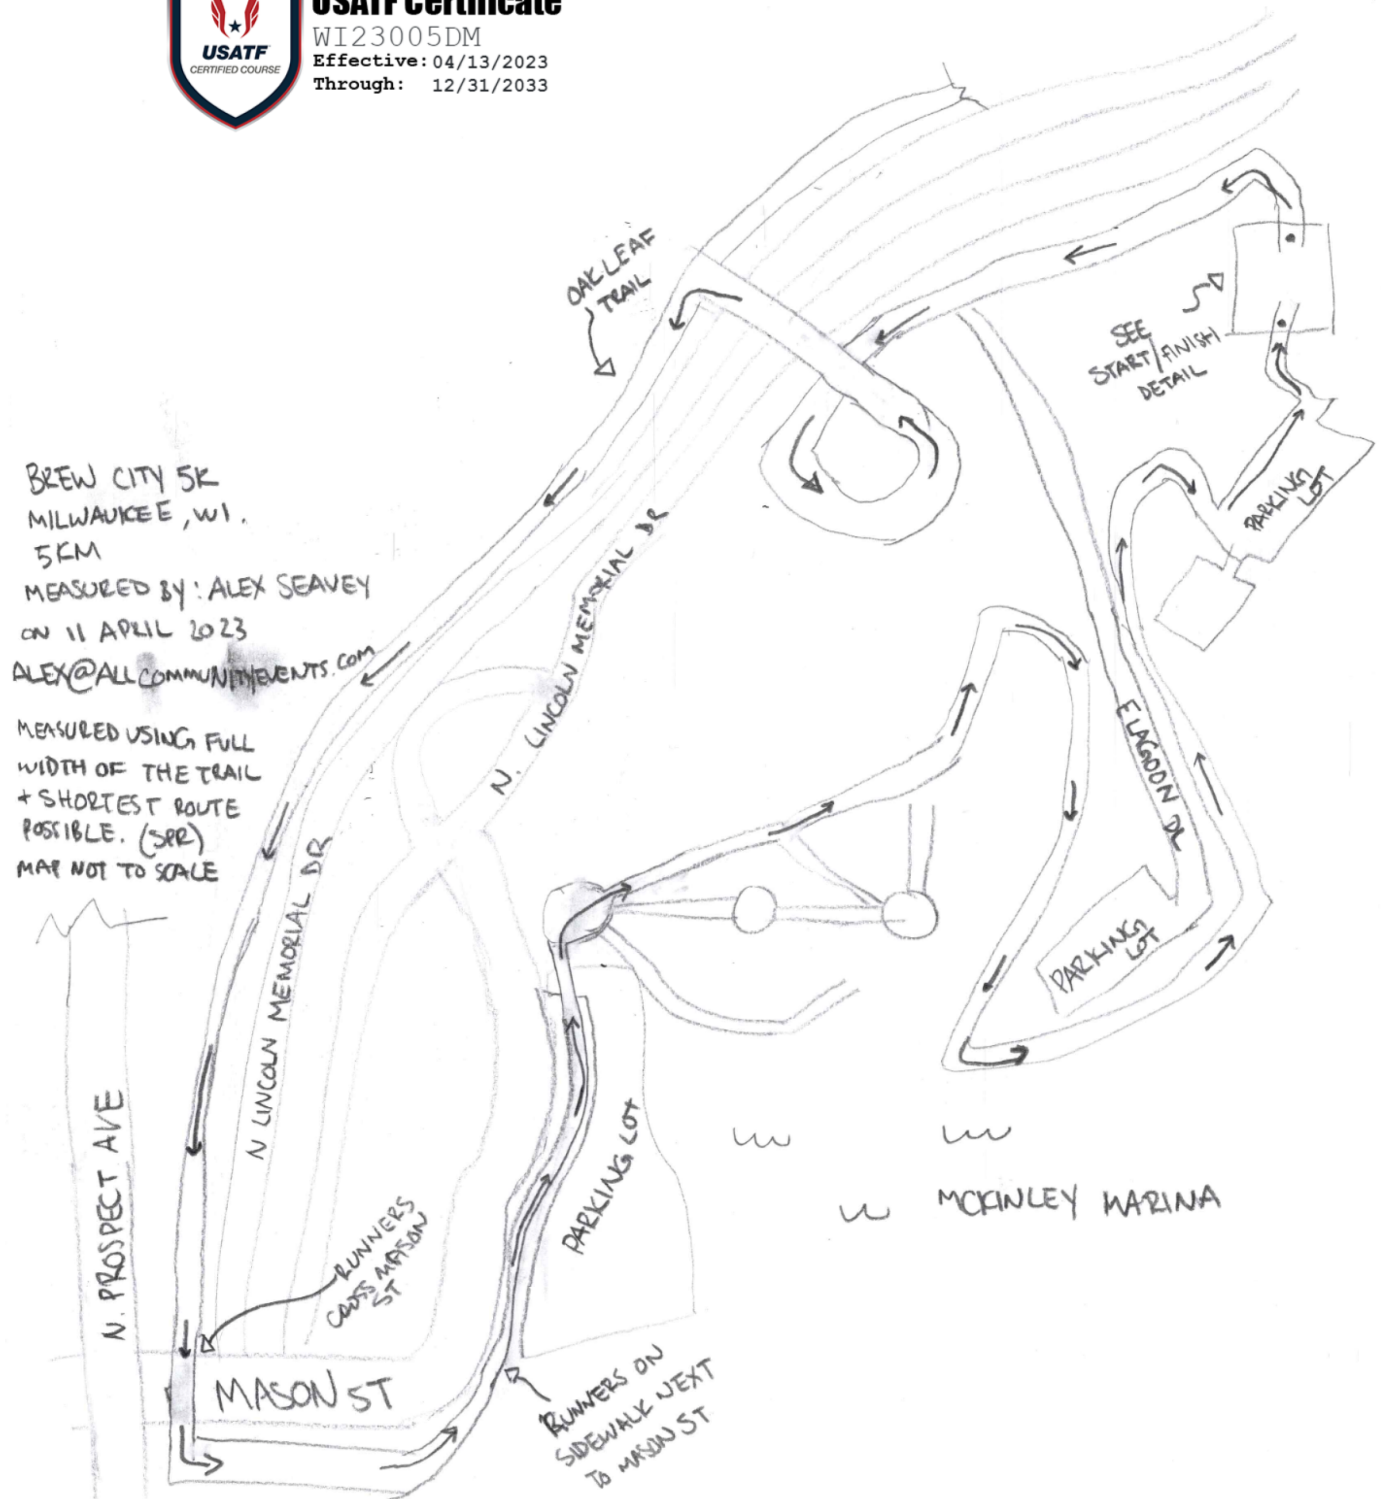 USATF Certificate
WI23005DM
Effective: 04/13/2023
Through: 12/31/2033
USATF
CERTIFIED COURSE
OAKLEAF
TRAIL
SEE
START/FINISH
DETAIL
PARKING
LOT
BREW CITY 5K
MILWAUKEE, WI.
5KM
MEASURED BY: ALEX SEAVEY
ON 11 APRIL 2023
ALEX@ALLCOMMUNITYEVENTS.COM
MEASURED USING FULL
WIDTH OF THE TRAIL
+ SHORTEST ROUTE
POSSIBLE. (SPR)
MAP NOT TO SCALE
N. LINCOLN MEMORIAL DR
N LINCOLN MEMORIAL DR
ELAGOON DR
PARKING
LOT
N. PROSPECT AVE
PARKING LOT
MCKINLEY MARINA
RUNNERS
CROSS MASON
ST
MASON ST
RUNNERS ON
SIDEWALK NEXT
TO MASON ST